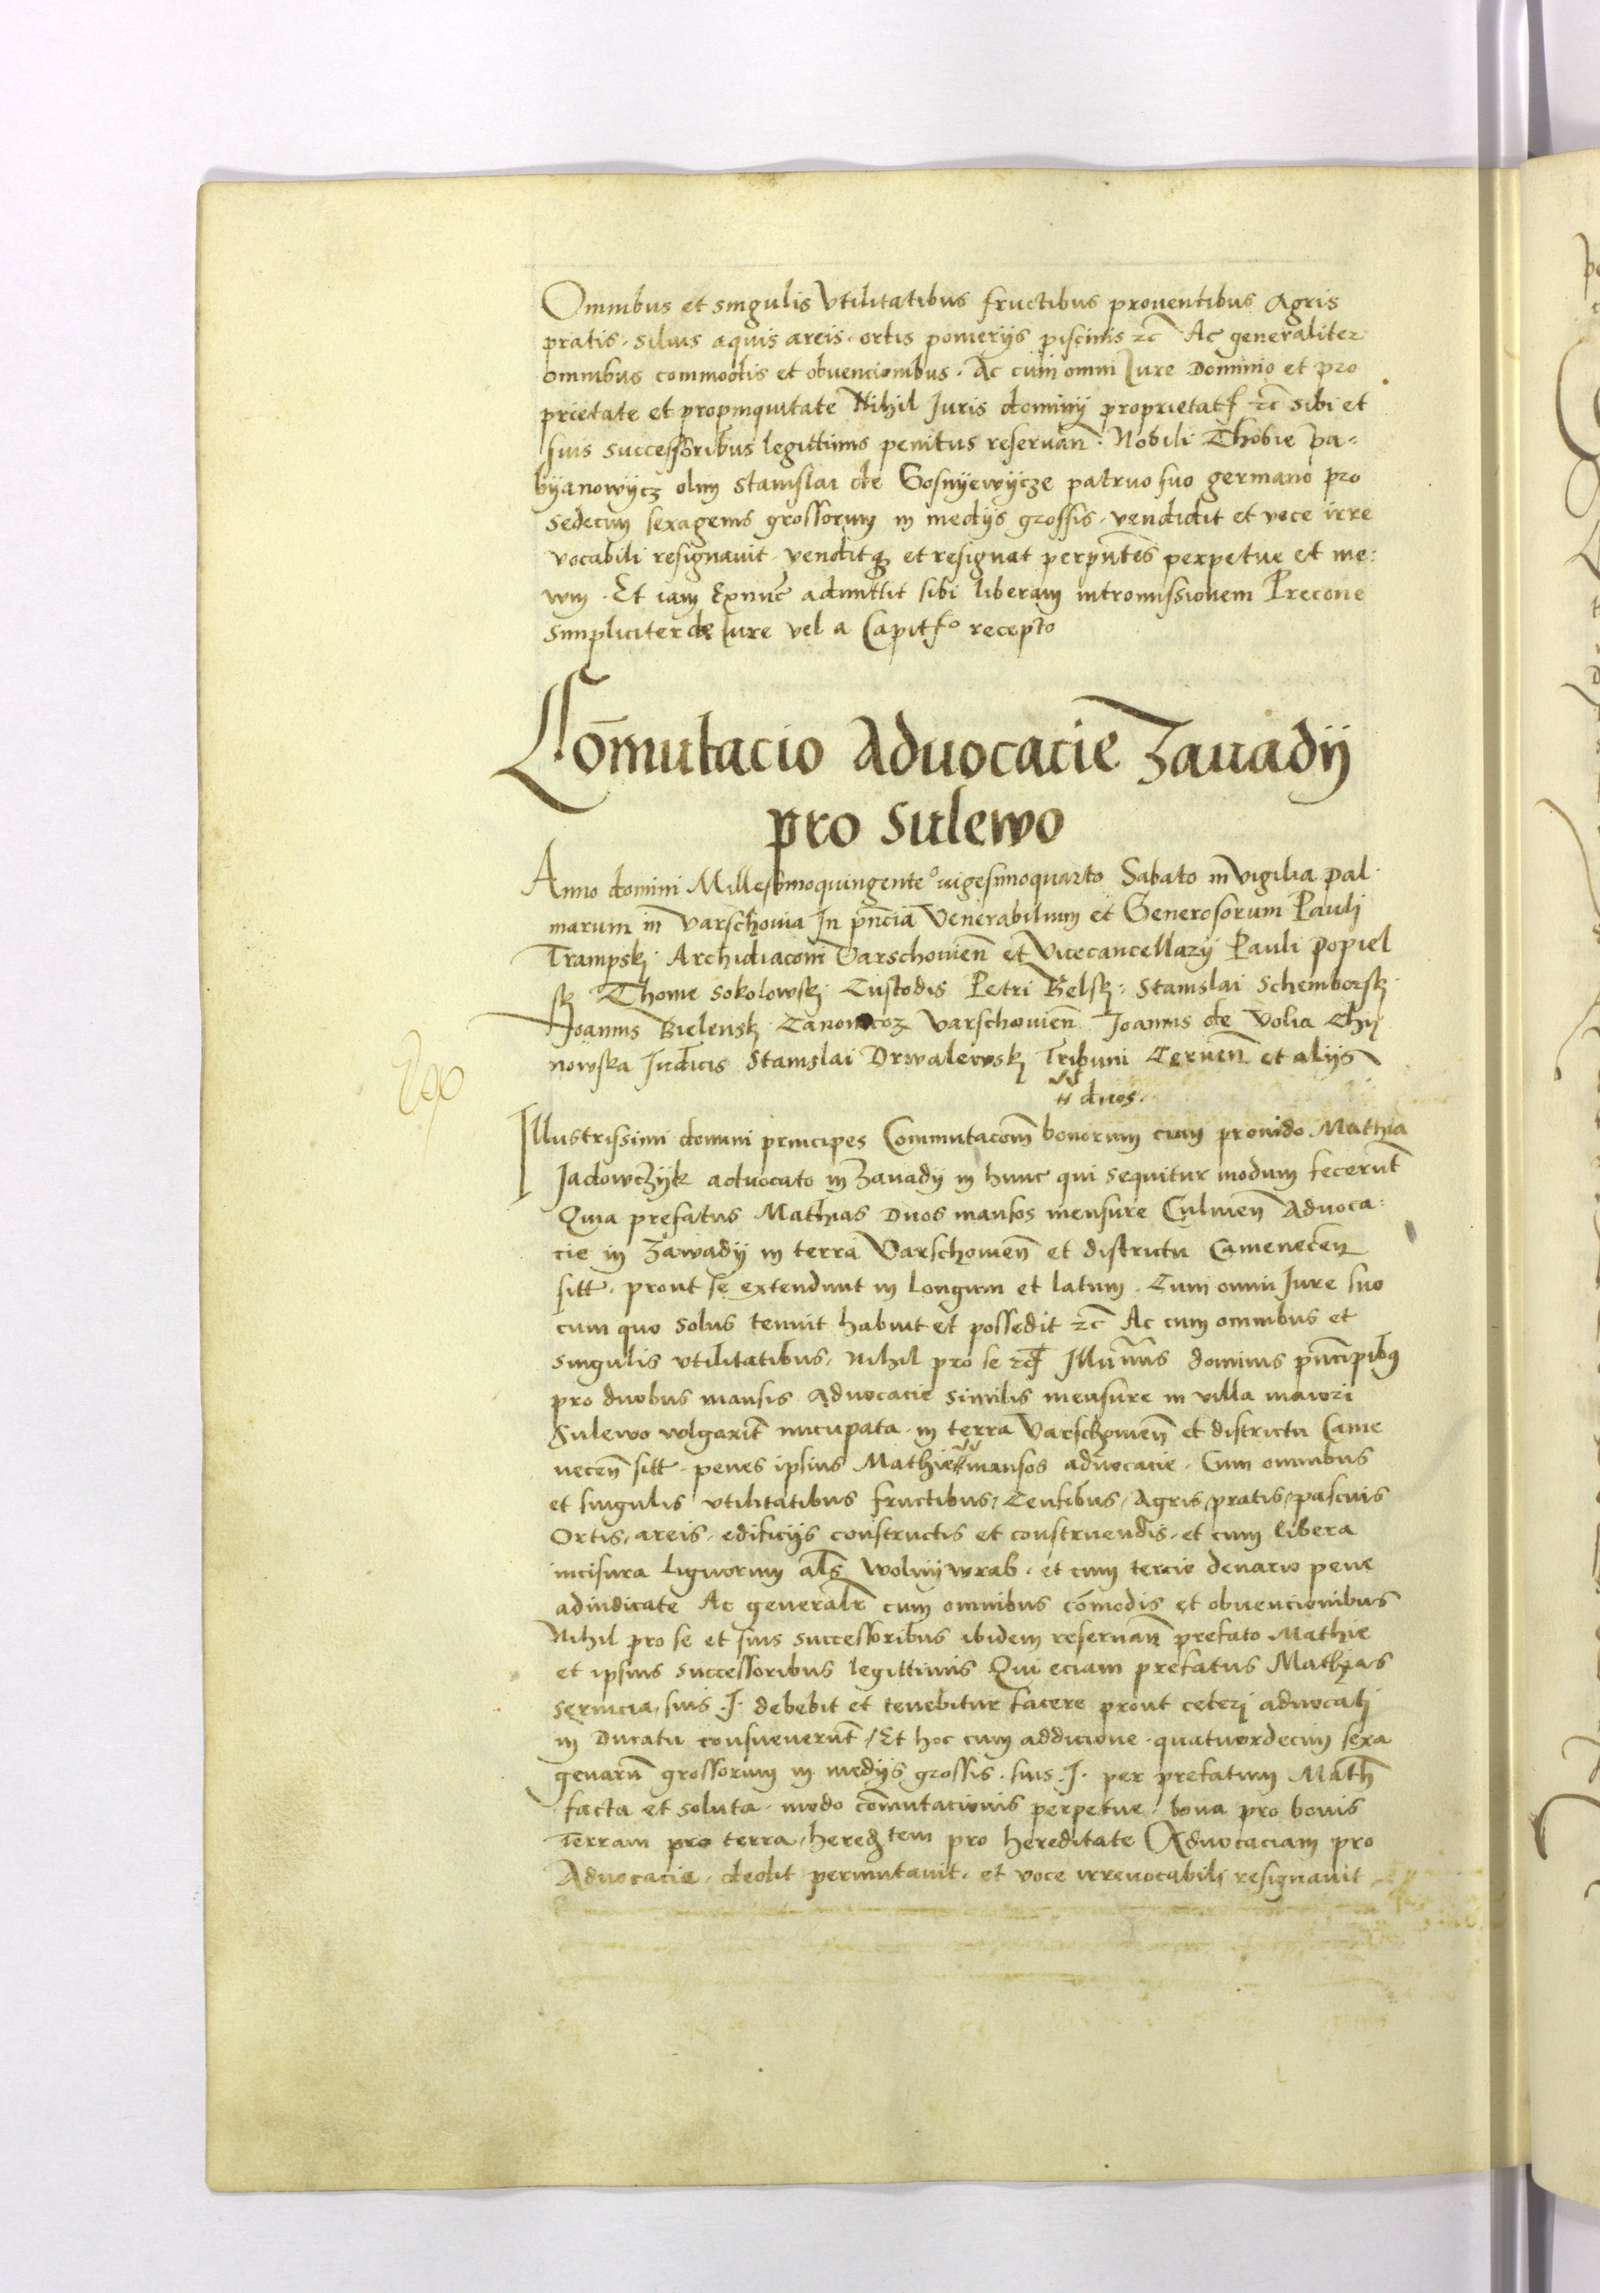 Omnibus et singulis Vtilitatibus fructibus prouentibus Agris
pratis siluis aquis areis ortis pomerijs piscinis etc̄ Ac generaliter
omnibus commodis et obuencionibus. Ac cum omni Jure Dominio et pro
prietate et propinquitate Nihil Juris dominij proprietatꝭ etc̄ sibi et
suis successoribus legittimis penitus reseruan̄. Nobili Thobie pa=
bijanowijcz olim Stanislai de Gosnijewijcze patruo suo germano pro
sedecim sexagenis grossorum in medijs grossis. vendidit et voce irre
vocabili resignauit. venditqꝫ et resignat per pn̄tes perpetue et in e:
wm. Et iam Exnūc admittit sibi liberam intromissionem Precone
simpliciter de Jure vel a Capitꝭo recepto
Com̄utacio Aduocacie Zauadij
pro Sulewo
Anno domini Millesimoquingenteº vigesimoquarto Sabato in vigilia pal
marum in Varschouia In pn̄cia Venerabilium et Generosorum Pauli
Trampskj Archidiaconi Varschouien̄ et Vicecancellarij Pauli Popiel
skj Thome Sokolowskj Custodis Petri Belskj: Stanislai Schemborskj
Joannis Bielenskj Canonicoꝝ Varschouien̄ Joannis de Volia Chij
nowska Judicis Stanislai Drwalewskj Tribuni Cernen̄ et alijs
duos.
Illustrissimi domini principes Commutacōm bonorum cum prouido Mathia
Jadowczijk aduocato in Zauadij in hunc qui sequitur modum fecerūt
Quia prefatus Mathias Duos mansos mensure Culmen̄ Aduoca:
cie in Zawadij in terra Varschouien̄ et districtu Camenecen̄
sitt. prout se extendunt in longum et latum. Cum omni Jure suo
cum quo solus tenuit habuit et possedit etc̄ Ac cum omnibus et
singulis vtilitatibus, Nihil pro se etc̄ Illu͞mis dominis pn̄cipibꝯ
pro duobus mansis aduocacie similis mensure in villa maiori
Sulewo wlgarit̄ nūcupata. in terra Varschouien̄ et districtu Came
necen̄ sitt. penes ipsius Mathie mansos aduocacie. Cum omnibus
et singulis vtilitatibus fructibus, Censibus, Agris, pratis, pascuis
Ortis, areis, edificijs constructis et construendis. et cum libera
incisura lignorum al̄s wolnij wrab. et cum tercio denario pene
adiudicate Ac generalr̄ cum omnibus cōmodis et obuencionibus
Nihil pro se et suis successoribus ibidem reseruan̄ prefato Mathie
et ipsius successoribus legittimis Qui eciam prefatus Mathias
seruicia, suis .J. debebit et tenebitur facere prout ceteri aduocati
in Ducatu consueuerūt, Et hoc cum addicione quatuordecim sexa
genarū grossorum in medijs grossis. suis .J. per prefatum Math̄
facta et soluta. modo com̄utacionis perpetue, bona pro bonis
Terram pro terra, hereditem pro hereditate Aduocaciam pro
Aduocacia. dedit permutauit. et voce irreuocabili resignauit